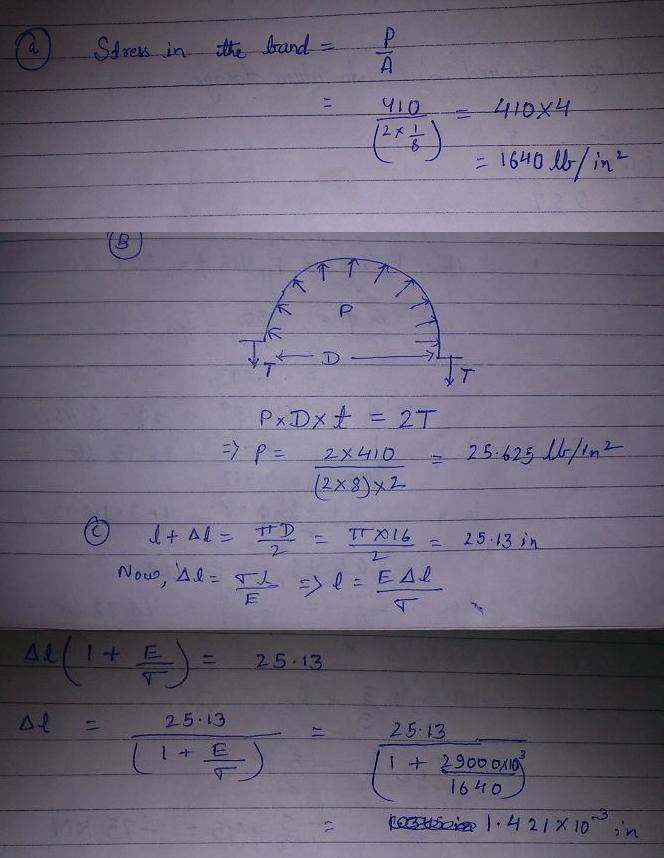 (a) Stress in the band = P/A
= 410/(2 × 1/8) = 410×4
= 1640 lb/in²
(B)
P
T D T
P×D×t = 2T
=> P = 2×410/((2×8)×2) = 25.625 lb/in²
(c) l + Δl = πD/2 = π×16/2 = 25.13 in
Now, Δl = σl/E => l = EΔl/σ
Δl(1 + E/σ) = 25.13
Δl = 25.13/(1 + E/σ) = 25.13/(1 + 29000×10³/1640)
= 1.421×10⁻³ in